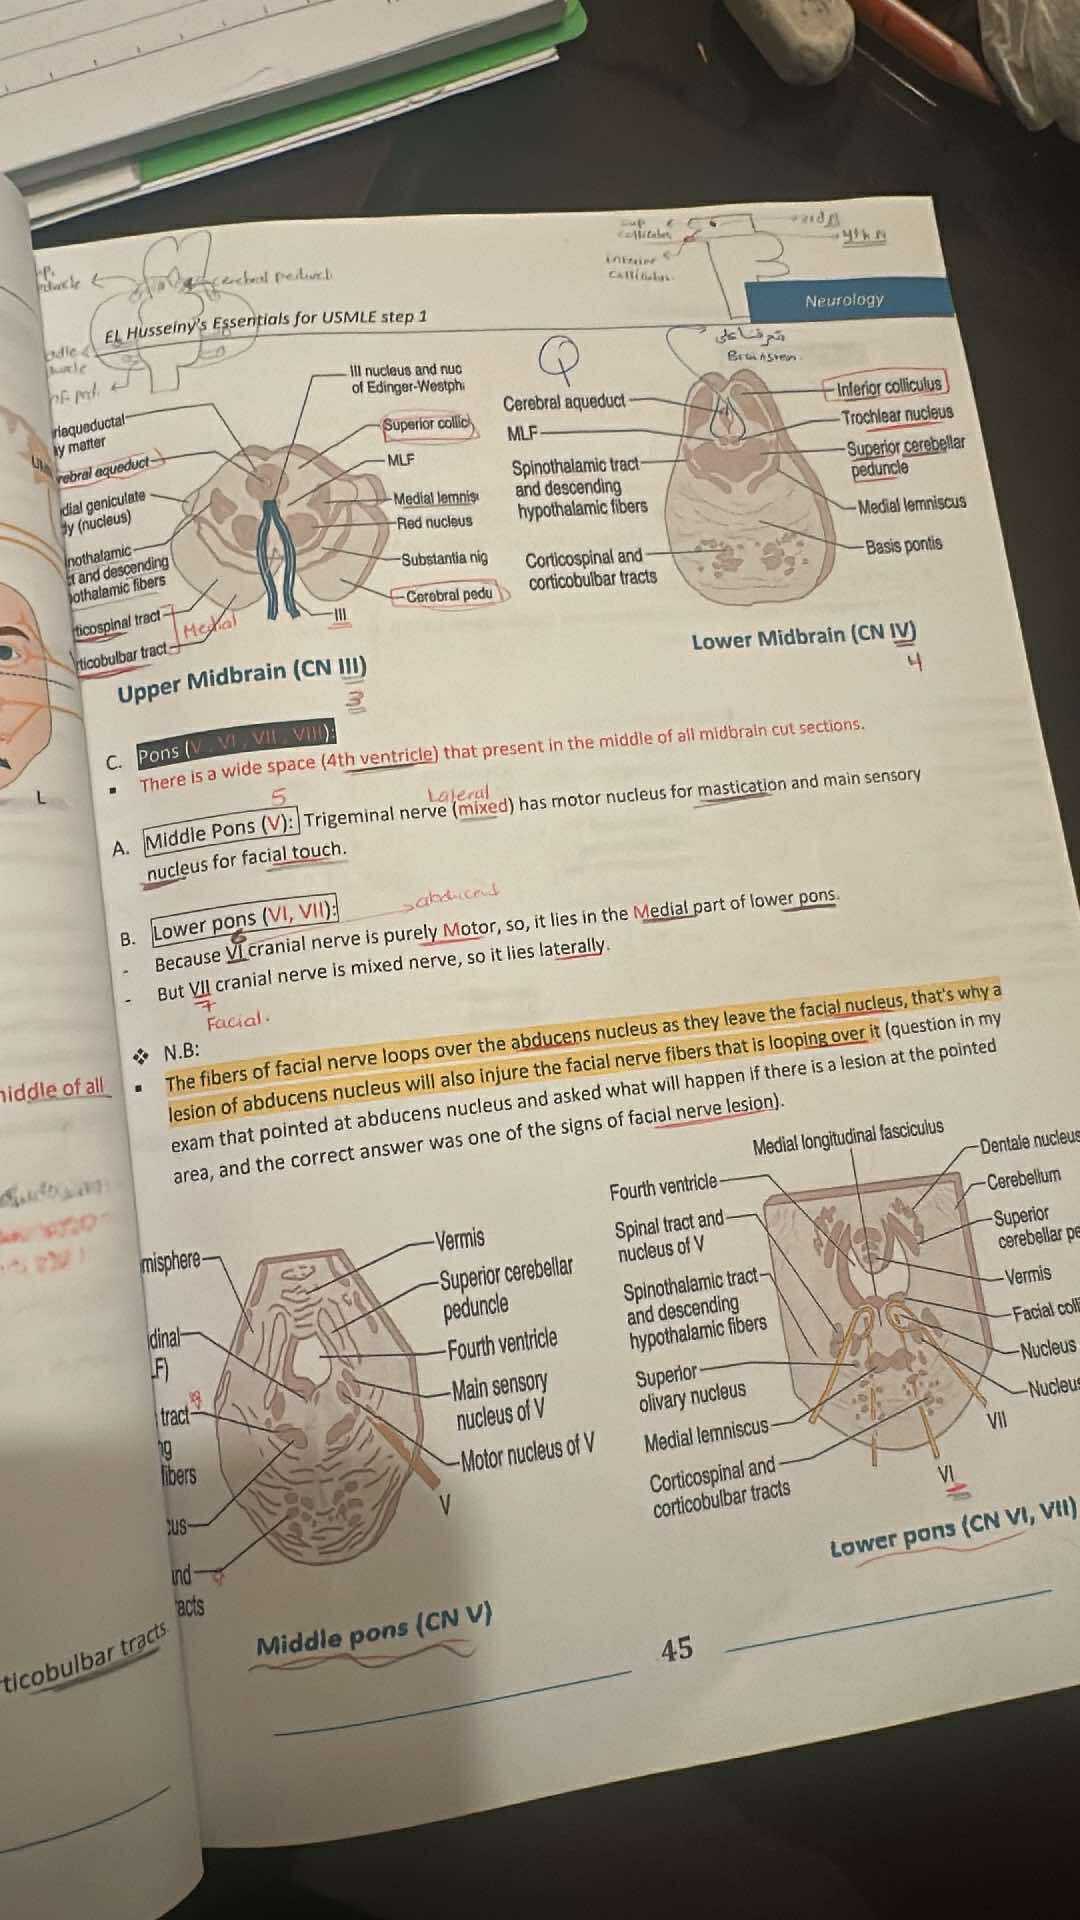 cerebral peduncle
sup
colliculus
inferior
colliculus
3rd N
4th N
EL Husseiny's Essentials for USMLE step 1
Neurology
Brainstem
Q
III nucleus and nuc
of Edinger-Westph
riaqueductal
ay matter
Superior collic
rebral aqueduct
MLF
dial geniculate
dy (nucleus)
Medial lemnis
Red nucleus
inothalamic
ct and descending
othalamic fibers
Substantia nig
Cerebral pedu
rticospinal tract
Medial
III
rticobulbar tract
Upper Midbrain (CN III)
3
Cerebral aqueduct
Inferior colliculus
MLF
Trochlear nucleus
Superior cerebellar
peduncle
Spinothalamic tract
and descending
hypothalamic fibers
Medial lemniscus
Corticospinal and
corticobulbar tracts
Basis pontis
Lower Midbrain (CN IV)
4
L
C. Pons (V, VI, VII, VIII):
▪ There is a wide space (4th ventricle) that present in the middle of all midbrain cut sections.
5
Lateral
A. Middle Pons (V): Trigeminal nerve (mixed) has motor nucleus for mastication and main sensory
nucleus for facial touch.
B. Lower pons (VI, VII):
abducent
6
- Because VI cranial nerve is purely Motor, so, it lies in the Medial part of lower pons.
- But VII cranial nerve is mixed nerve, so it lies laterally.
7
Facial.
❖ N.B:
▪ The fibers of facial nerve loops over the abducens nucleus as they leave the facial nucleus, that's why a
lesion of abducens nucleus will also injure the facial nerve fibers that is looping over it (question in my
exam that pointed at abducens nucleus and asked what will happen if there is a lesion at the pointed
area, and the correct answer was one of the signs of facial nerve lesion).
niddle of all
misphere
Vermis
Superior cerebellar
peduncle
dinal
LF)
Fourth ventricle
Main sensory
nucleus of V
tract
ng
fibers
Motor nucleus of V
V
cus
and
racts
Middle pons (CN V)
Medial longitudinal fasciculus
Dentale nucleus
Fourth ventricle
Cerebellum
Spinal tract and
nucleus of V
Superior
cerebellar pe
Spinothalamic tract
and descending
hypothalamic fibers
Vermis
Facial coll
Superior
olivary nucleus
Nucleus
Nucleus
Medial lemniscus
VII
Corticospinal and
corticobulbar tracts
VI
Lower pons (CN VI, VII)
ticobulbar tracts
45